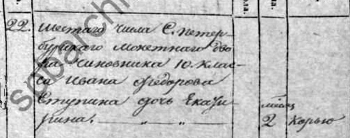 22. Шестаго числа С. Петер-
бургскаго Монетнаго дво-
ра Чиновника 10. Клас-
са Ивана Федорова
Ступина дочь Екате-
рина.
месяц
2 Корью
spbarchi